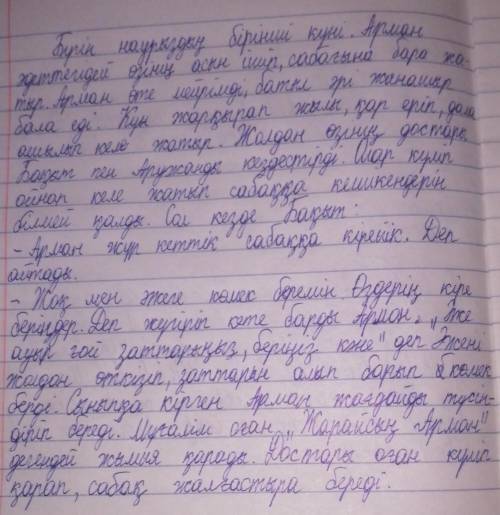 Бүгін наурыздың бірінші күні. Арман
әдеттегідей өзінің асын ішіп, сабағына бара жа-
тыр. Арман өте мейірімді, батыл әрі жанашыр
бала еді. Күн жарқырап жылы, қар еріп, дала
ашылып келе жатыр. Жолдан өзінің достары
Бақыт пен Аружанды кездестірді. Олар күліп
ойнап келе жатып сабаққа кешіккендерін
білмей қалды. Сол кезде Бақыт:
- Арман жүр кеттік сабаққа кірейік. Деп
айтады.
- Жоқ мен әжеге көмек беремін. Өздерің кіре
беріңдер. Деп жүгіріп кете барды Арман. „Әже
ауыр ғой заттарыңыз, беріңіз көне" деп Әжені
жолдан өткізіп, заттарын алып барып көмек
берді. Сыныпқа кірген Арман жағдайды түсін-
діріп береді. Мұғалім оған „Жарайсың Арман"
дегендей жымия қарады. Достары оған күліп
қарап, сабақ жалғастыра береді.